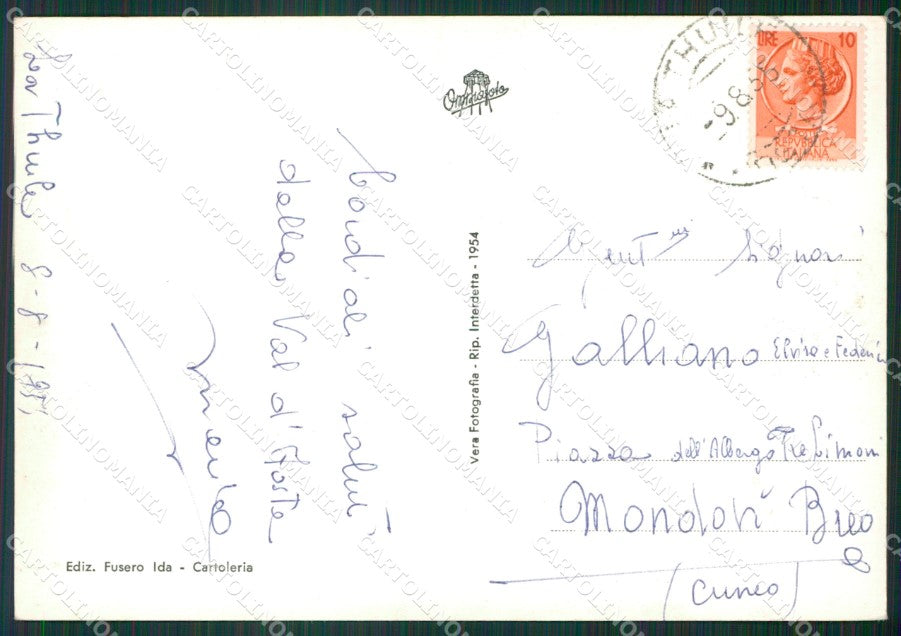 La Thuile 8-8-195
Cordiali saluti
dalla Val d'Aosta
Ediz. Fusero Ida - Cartoleria
Omniafoto
Vera Fotografia - Rip. Interdetta - 1954
THUILE
-9.8.56
LIRE 10
REPVBBLICA
ITALIANA
Gent.mi Signori
Galliano Elvira e Federico
Piazza dell'Albergo Tre Limoni
Mondovì Breo
(Cuneo)
CARTOLINOMANIA